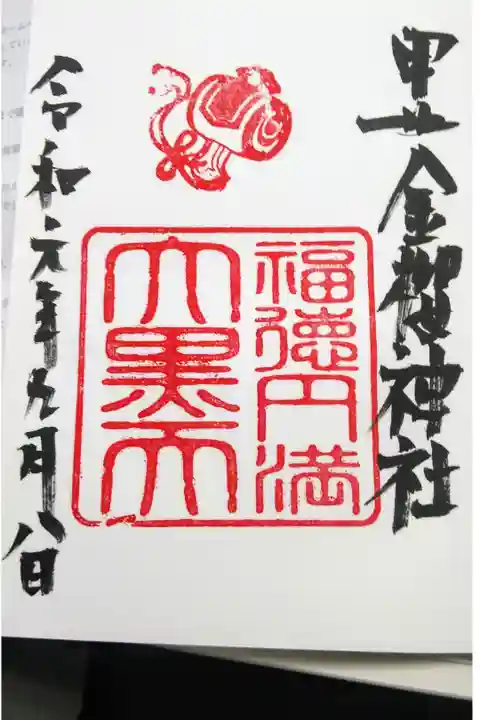 甲斐金櫻神社
福徳円満
大黒天
令和元年九月八日